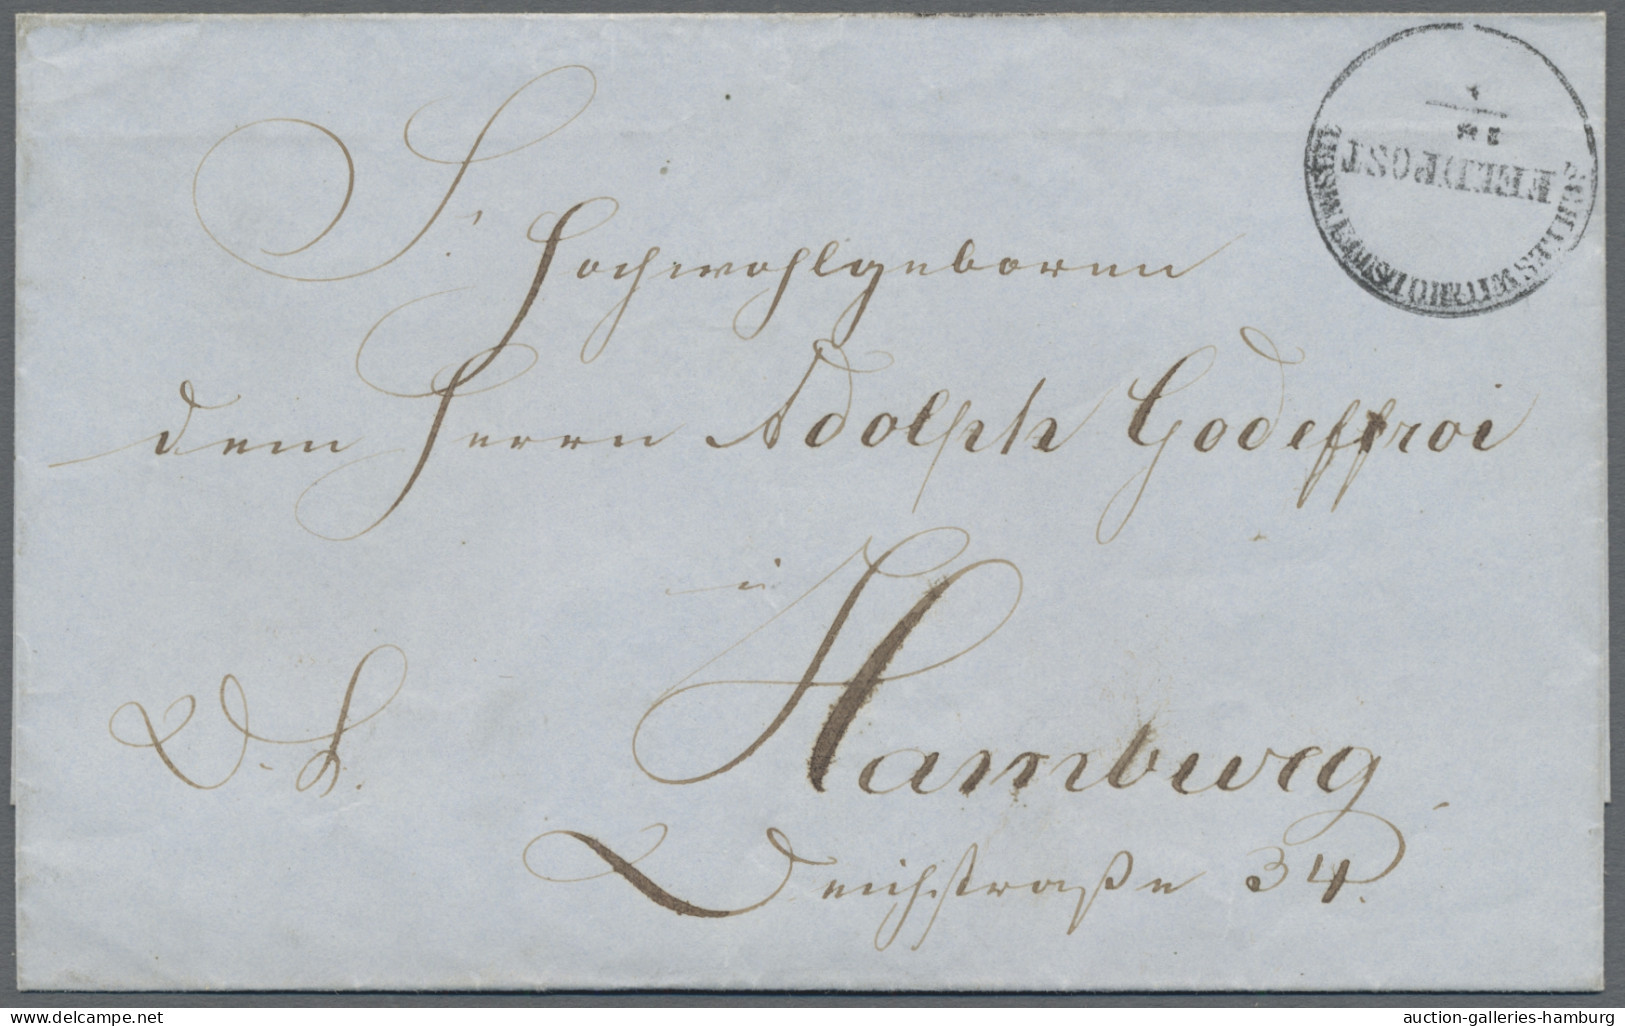 FELDPOST
Sr.
Hochwohlgeboren
dem Herrn Adolph Godeffroi
in
Hamburg
Deichstraße 34.
auction-galleries-hamburg
www.delcampe.net